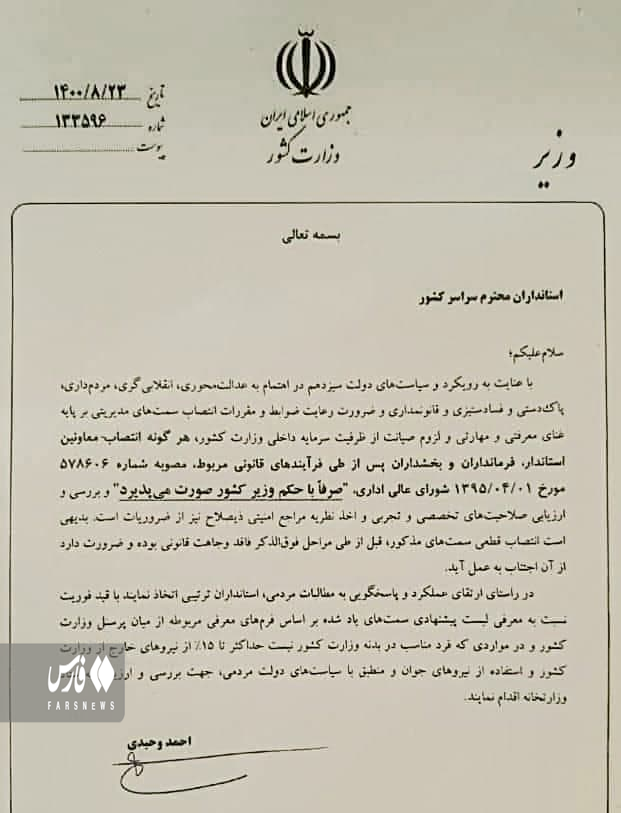 جمهوری اسلامی ایران
وزارت کشور
وزیر
تاریخ ۱۴۰۰/۸/۲۳
شماره ۱۳۳۵۹۶
پیوست
بسمه تعالی
استانداران محترم سراسر کشور
سلام‌علیکم؛
با عنایت به رویکرد و سیاست‌های دولت سیزدهم در اهتمام به عدالت‌محوری، انقلابی‌گری، مردم‌داری،
پاک‌دستی و فسادستیزی و قانونمداری و ضرورت رعایت ضوابط و مقررات انتصاب سمت‌های مدیریتی بر پایه
غنای معرفتی و مهارتی و لزوم صیانت از ظرفیت سرمایه داخلی وزارت کشور، هر گونه انتصاب معاونین
استاندار، فرمانداران و بخشداران پس از طی فرآیندهای قانونی مربوط، مصوبه شماره ۵۷۸۶۰۶
مورخ ۱۳۹۵/۰۴/۰۱ شورای عالی اداری، "صرفاً با حکم وزیر کشور صورت می‌پذیرد" و بررسی و
ارزیابی صلاحیت‌های تخصصی و تجربی و اخذ نظریه مراجع امنیتی ذیصلاح نیز از ضروریات است. بدیهی
است انتصاب قطعی سمت‌های مذکور، قبل از طی مراحل فوق‌الذکر فاقد وجاهت قانونی بوده و ضرورت دارد
از آن اجتناب به عمل آید.
در راستای ارتقای عملکرد و پاسخگویی به مطالبات مردمی، استانداران ترتیبی اتخاذ نمایند با قید فوریت
نسبت به معرفی لیست پیشنهادی سمت‌های یاد شده بر اساس فرم‌های معرفی مربوطه از میان پرسنل وزارت
کشور و در مواردی که فرد مناسب در بدنه وزارت کشور نیست حداکثر تا ۱۵٪ از نیروهای خارج از وزارت
کشور و استفاده از نیروهای جوان و منطبق با سیاست‌های دولت مردمی، جهت بررسی و
وزارتخانه اقدام نمایند.
احمد وحیدی
فارس
FARSNEWS